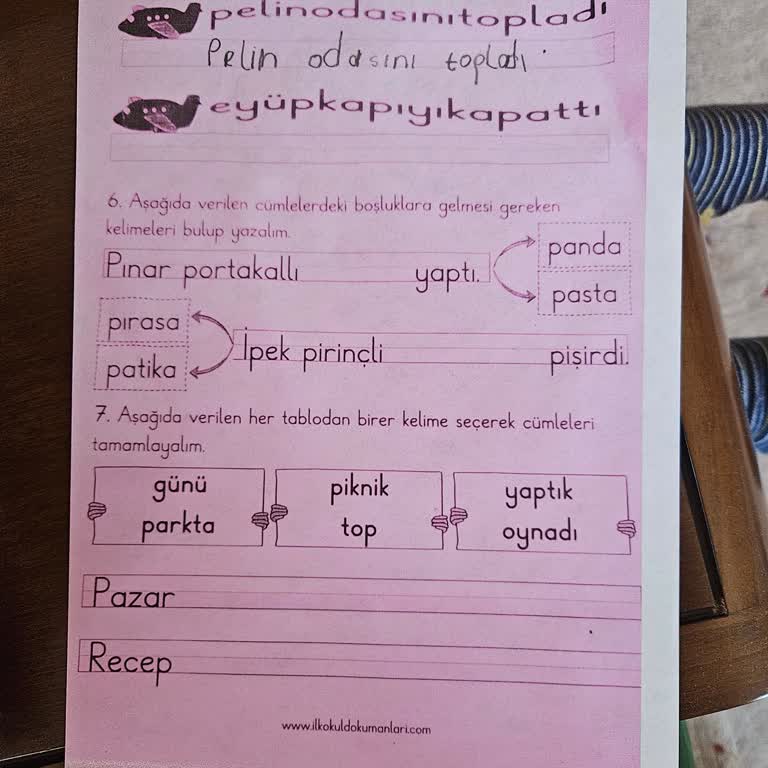 pelinodasınıtopladı
Pelin odasını topladı.
eyüpkapıyıkapattı
6. Aşağıda verilen cümlelerdeki boşluklara gelmesi gereken
kelimeleri bulup yazalım.
Pınar portakallı yaptı.
panda
pasta
pırasa
patika
İpek pirinçli pişirdi.
7. Aşağıda verilen her tablodan birer kelime seçerek cümleleri
tamamlayalım.
günü piknik yaptık
parkta top oynadı
Pazar
Recep
www.ilkokuldokumanlari.com